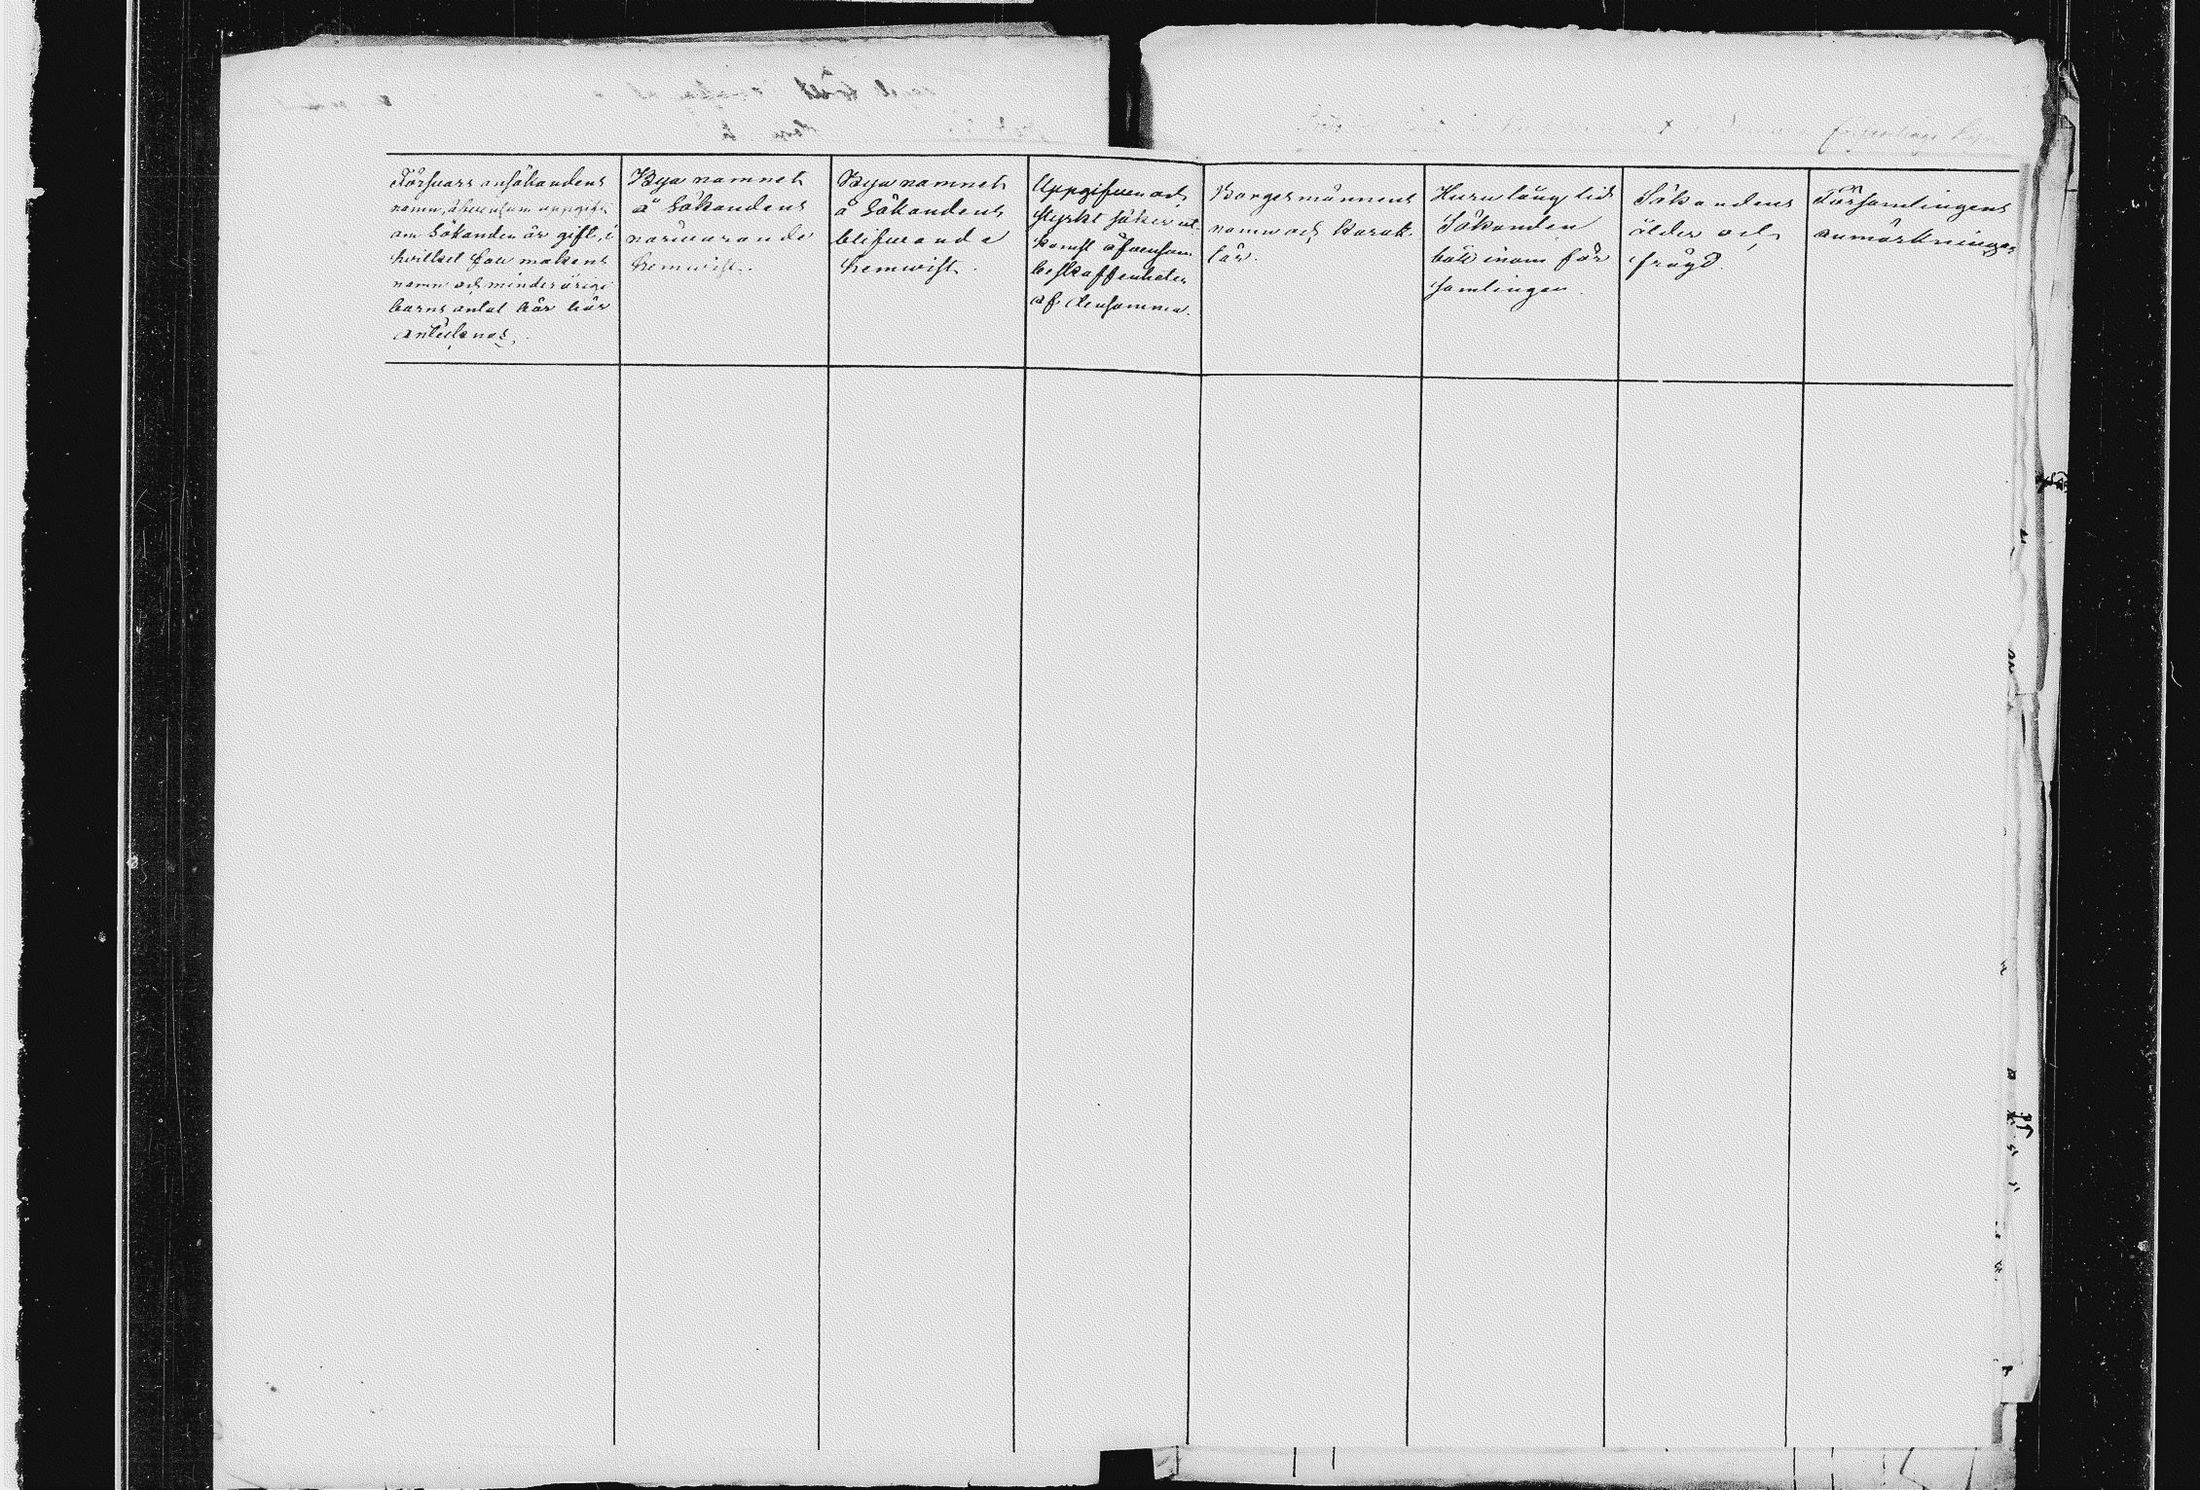 Försvars ansökandens
namn, äfvensom uppgift
om Sökanden är gift, i
hvilket fall makens
namn och minderårige
barns antal här bör
antecknas.
Bya namnet
å Sökandens
närvarande
hemwist.
Bya namnet
å Sökandens
blifvande
hemwist.
Uppgifven och
styrkt säker ut-
komst äfvensom
beskaffenheten
af densamma.
Borgesmännens
namn och karak-
tär.
Huru lång tid
Sökanden
bott inom för
samlingen.
Sökandens
ålder och
frägd.
Församlingens
anmärkningar